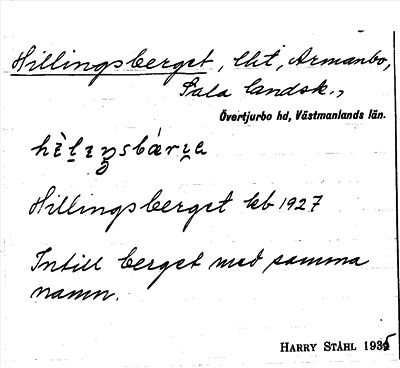 Hillingsberget, lht, Armanbo,
Sala landsk.,
Övertjurbo hd, Västmanlands län.
hìlɪŋsbárɪa
Hillingsberget kb 1927
Intill berget med samma
namn.
HARRY STÅHL 1935